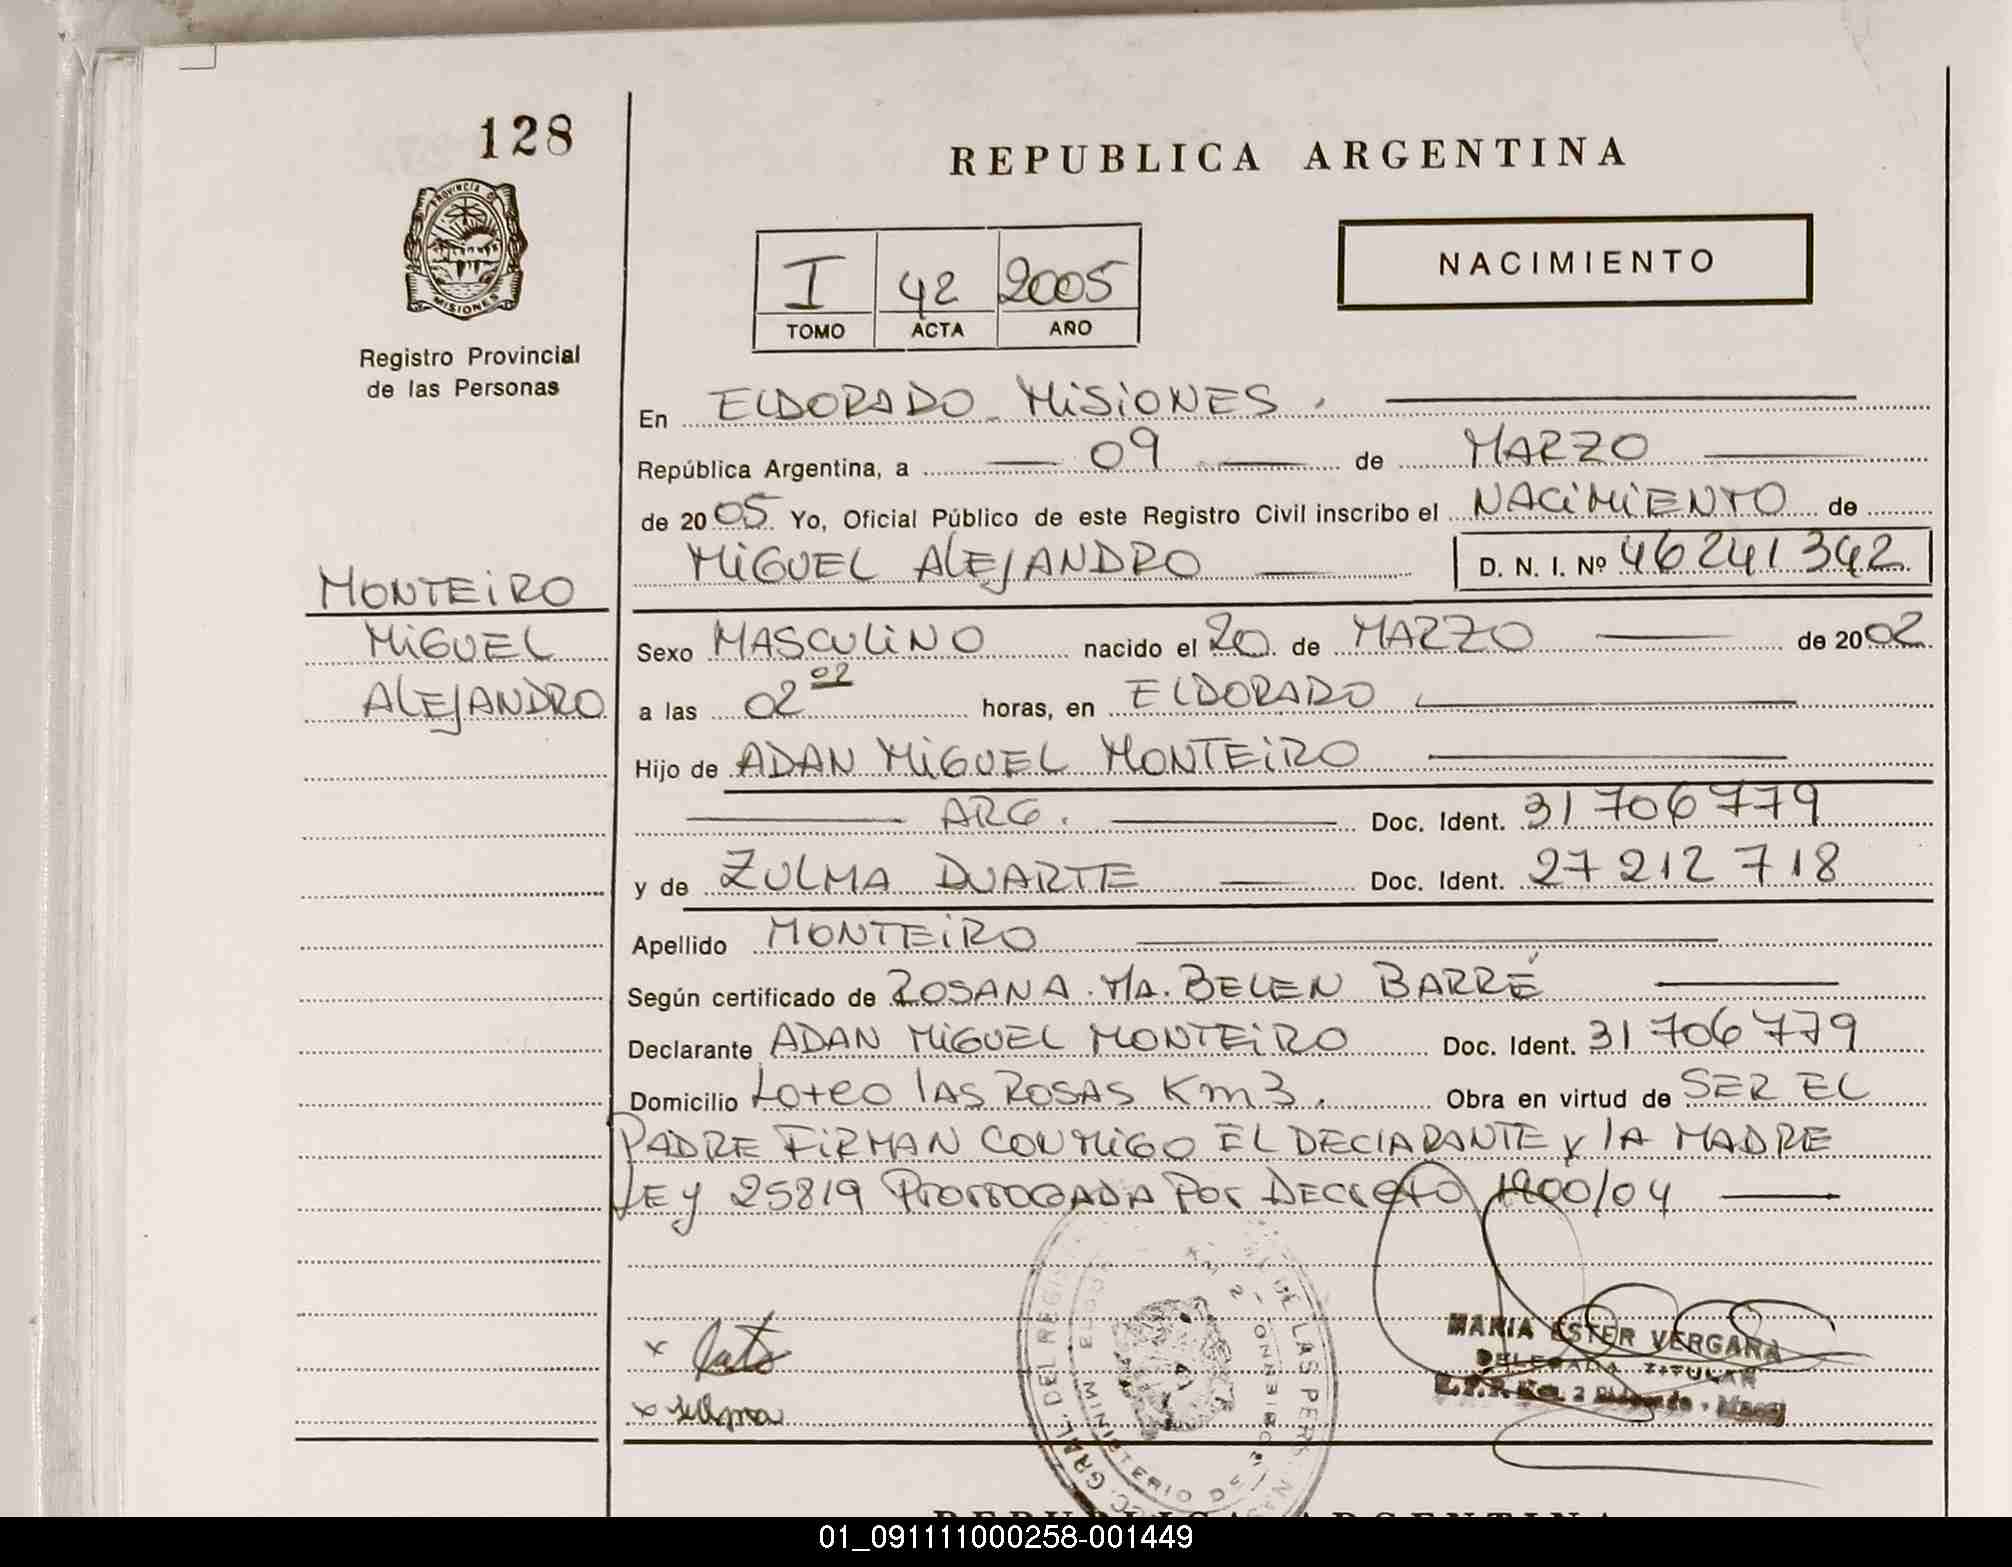 128
PROVINCIA DE
MISIONES
Registro Provincial
de las Personas
REPUBLICA ARGENTINA
I 42 2005
TOMO ACTA AÑO
NACIMIENTO
En ELDORADO MISIONES.
República Argentina, a 09 de MARZO
de 2005 Yo, Oficial Público de este Registro Civil inscribo el NACIMIENTO de
MIGUEL ALEJANDRO D. N. I. Nº 46241342
MONTEIRO
MIGUEL
ALEJANDRO
Sexo MASCULINO nacido el 20 de MARZO de 2002
a las 02 02 horas, en ELDORADO
Hijo de ADAN MIGUEL MONTEIRO
ARG. Doc. Ident. 31706779
y de ZULMA DUARTE Doc. Ident. 27212718
Apellido MONTEIRO
Según certificado de ROSANA Ma. BELEN BARRÉ
Declarante ADAN MIGUEL MONTEIRO Doc. Ident. 31706779
Domicilio Loteo LAS ROSAS Km3. Obra en virtud de SER EL
PADRE FIRMAN CONMIGO EL DECLARANTE y LA MADRE
LEY 25819 PRORROGADA POR DECRETO 1200/04
MARIA ESTER VERGARA
DELEGADA TITULAR
x
x Zulma
GRAL. DEL REGI DE LAS PERS
MINISTERIO DE
REPUBLICA ARGENTINA
01_091111000258-001449